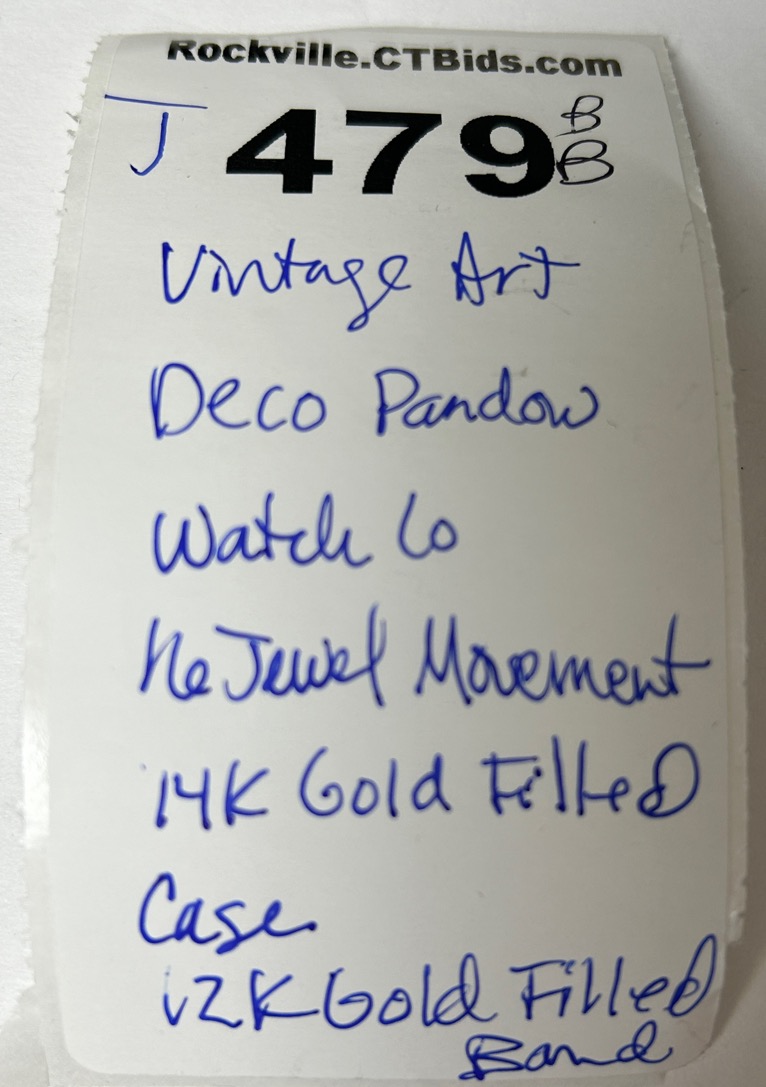 Rockville.CTBids.com
J 479 B B
Vintage Art
Deco Pandow
Watch Co
Jewel Movement
14K Gold Filled
Case
12K Gold Filled
Band